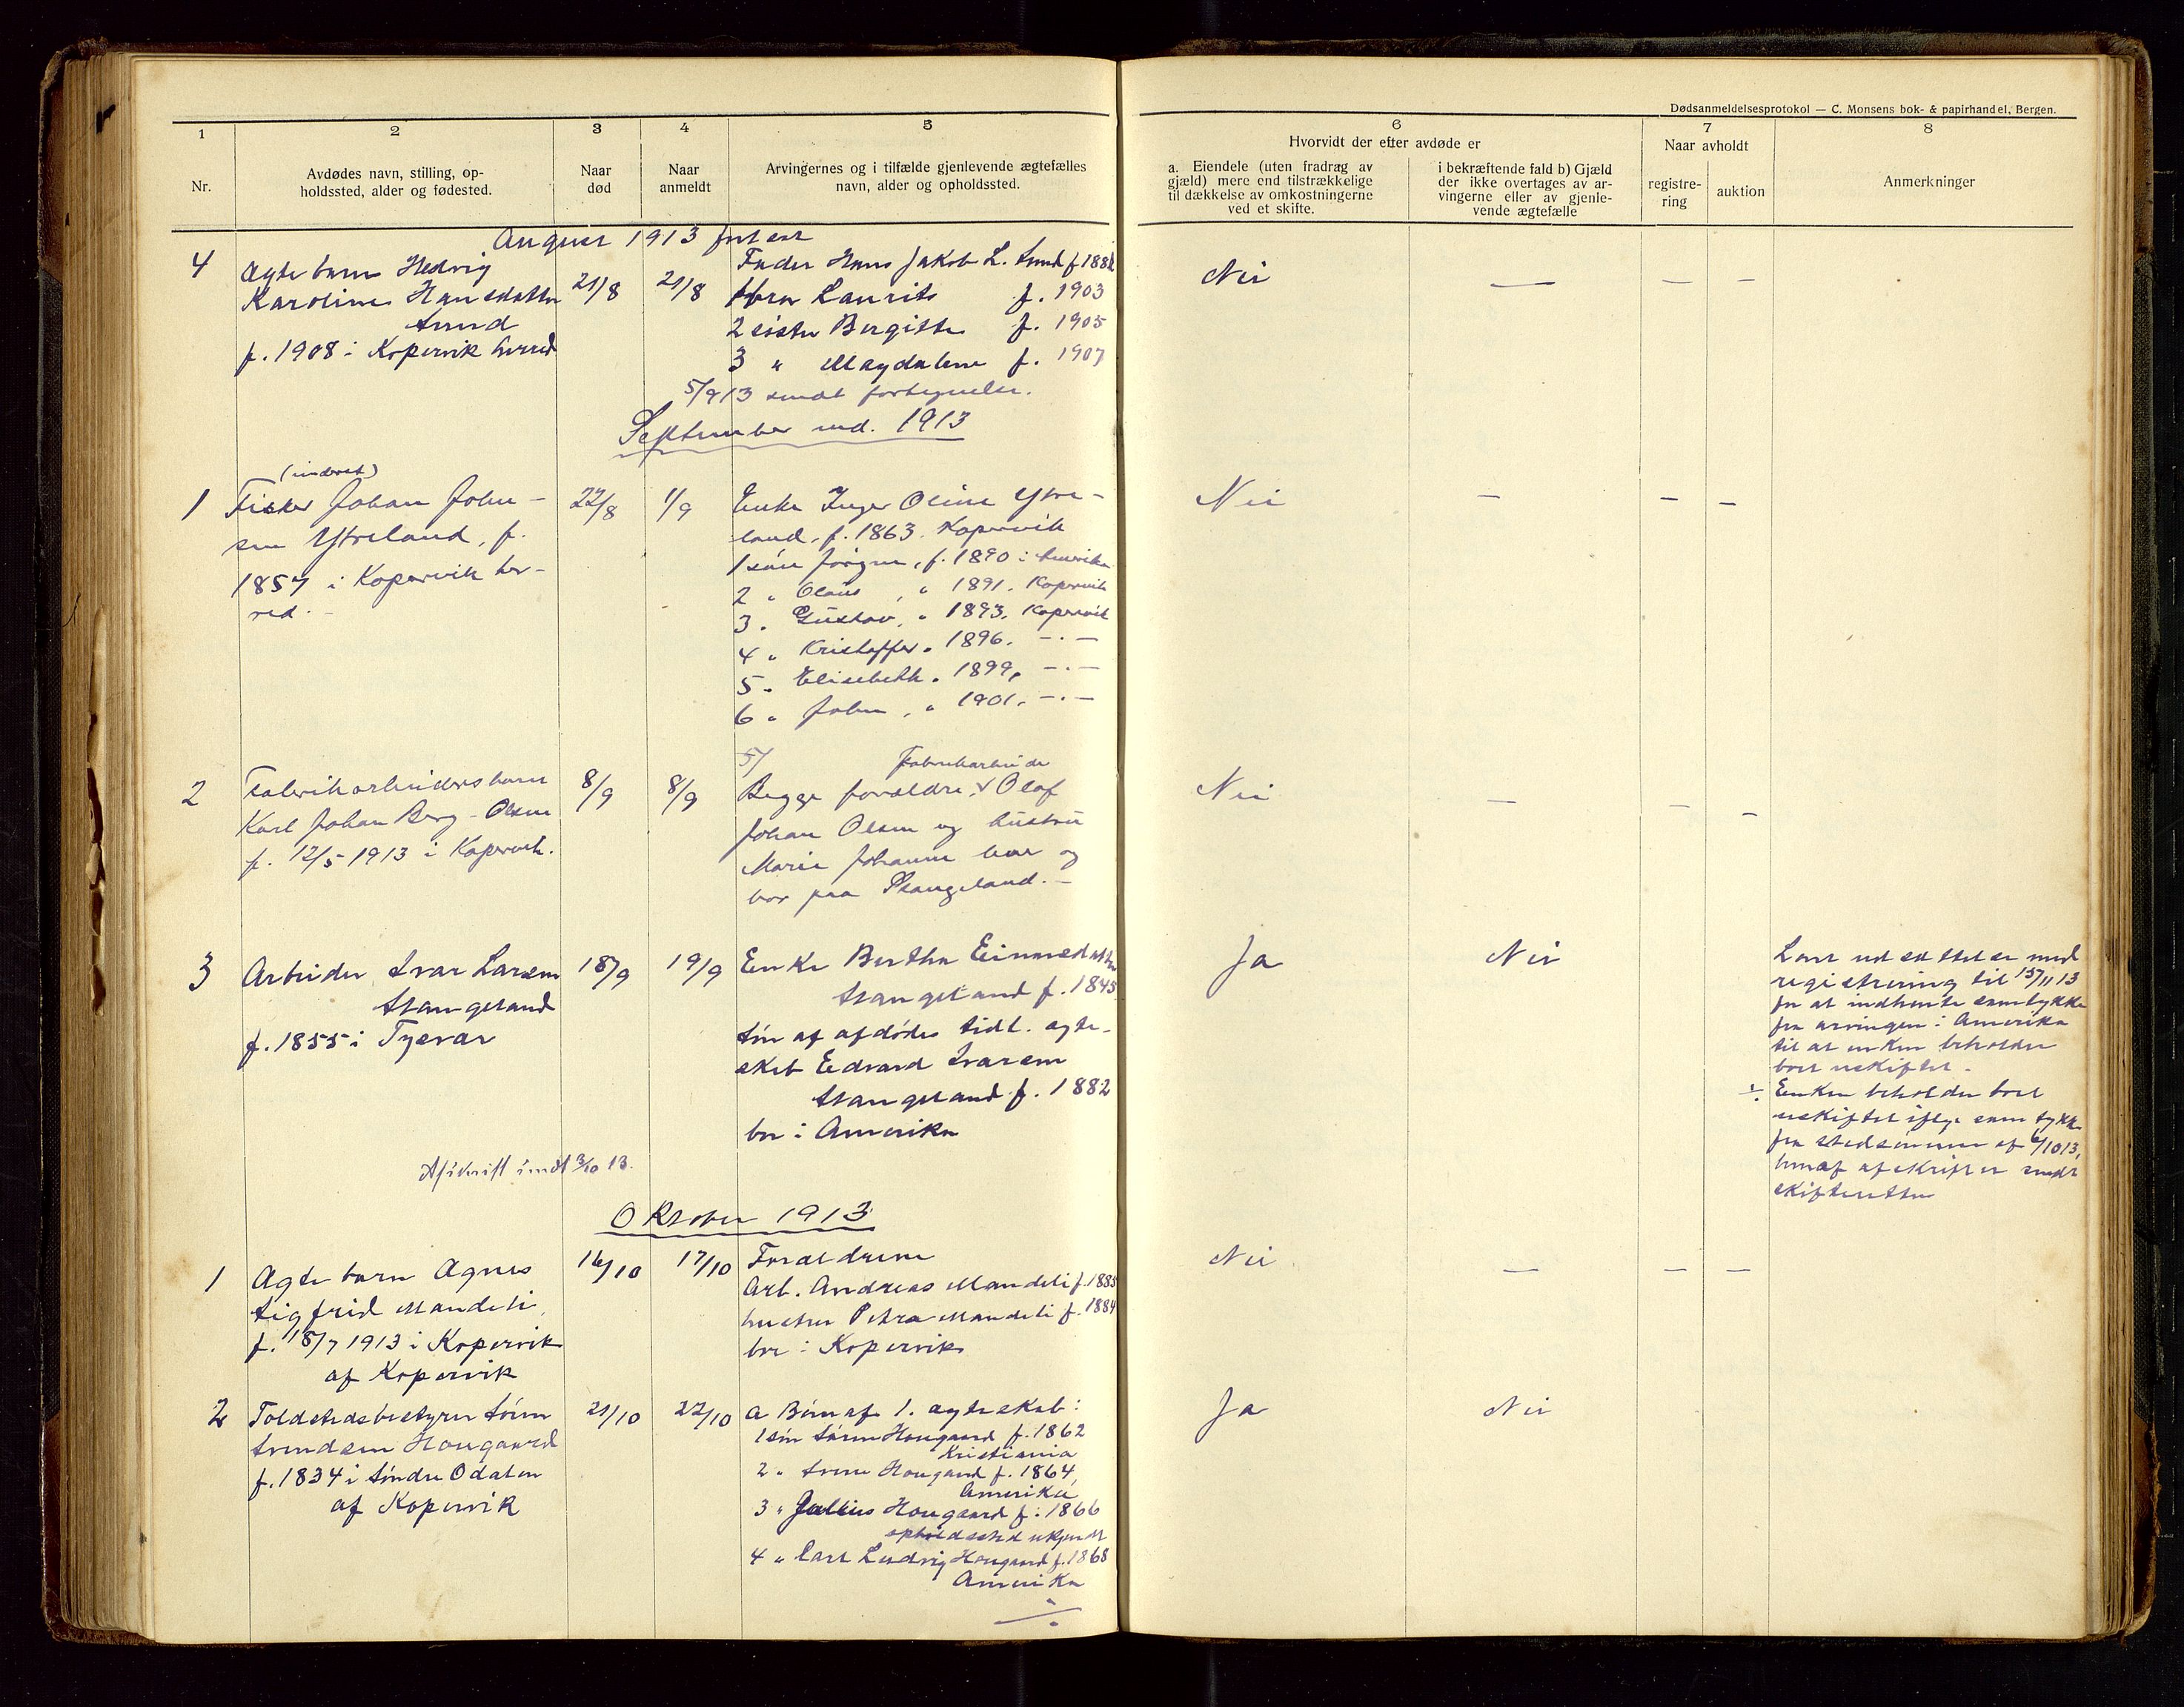 Dødsanmeldelsesprotokol — C. Monsens bok- & papirhandel, Bergen.
1
Nr.
2
Avdødes navn, stilling, op-
holdssted, alder og fødested.
3
Naar
død
4
Naar
anmeldt
5
Arvingernes og i tilfælde gjenlevende ægtefælles
navn, alder og opholdssted.
6
Hvorvidt der efter avdøde er
a. Eiendele (uten fradrag av
gjæld) mere end tilstrækkelige
til dækkelse av omkostningerne
ved et skifte.
i bekræftende fald b) Gjæld
der ikke overtages av ar-
vingerne eller av gjenle-
vende ægtefælle
7
Naar avholdt
registre-
ring
auktion
8
Anmerkninger
August 1913 fortsat
4
Ægtebarn Hedvig
Karoline Hansdatter
Lund
f. 1908 i Kopervik herred
21/8
21/8
Fader Hans Jakob L. Lund f 188
1 bror Laurits f. 1903
2 søster Bergitte f. 1905
3 " Magdalene f. 1907
5/9 13 sendt fortegnelse.
Nei — — —
September md. 1913
1
(inderst)
Fisker Johan John-
sen Ytreland, f.
1857 i Kopervik her-
red. -
1/9
Enke Inger Oline Ytre-
land, f. 1863. Kopervik
1 søn Jørgen, f. 1890 i Amerika
2 " Olaus , " 1891. Kopervik
3 " Gustav, " 1893. Kopervik
4 " Kristoffer " 1896. -.-
5 " Elisebeth " 1899, -.-
6 " John , " 1901. -.-
Nei — — —
2
Fabrikarbeidersbarn
Karl Johan Berg-Olsen
f. 12/5 1913 i Kopervik.
8/9
8/9
5/
Fabrikarbeider
Begge forældre, Olaf
Johan Olsen og hustru
Marie Johanne lever og
bor paa Stangeland. -
Nei — — —
3
Arbeider Ivar Larsen
Stangeland
f. 1855 i Tysvær
18/9
19/9
Enke Bertha Einarsdatter
Stangeland f. 1845
Søn af afdødes tidl. ægte-
skab Edvard Ivarsen
Stangeland f. 1882
bor i Amerika
Ja
Nei
Lovet udsættelse med
registrering til 15/11 13
for at indhente samtykke
fra arvingen i Amerika
til at enken beholder
boet uskiftet.
÷ Enken beholder boet
uskiftet ifølge samtykke
fra stedsønnen af 6/10 13,
hvoraf afskrift er sendt
skifteretten
Afskrift sendt 3/10 13.
Oktober 1913
1
Ægtebarn Agnes
Sigfrid Mandeli
f. 18/7 1913 i Kopervik
af Kopervik
16/10
17/10
Forældrene
Arb. Andreas Mandeli f. 1885
hustru Petra Mandeli f. 1884
bor i Kopervik
Nei — — —
2
Toldstedsbestyrer Søren
Svendsen Hougaard
f. 1834 i Søndre Odalen
af Kopervik
21/10
22/10
A Børn af 1. ægteskab:
1 søn Søren Hougaard f. 1862
Kristiania
2 " Svenn Hougaard f. 1864,
Amerika
3 " Julius Hougaard f. 1866
opholdssted ukjendt
4 " Carl Ludvig Hougaard f. 1868
Amerika
÷
Ja
Nei